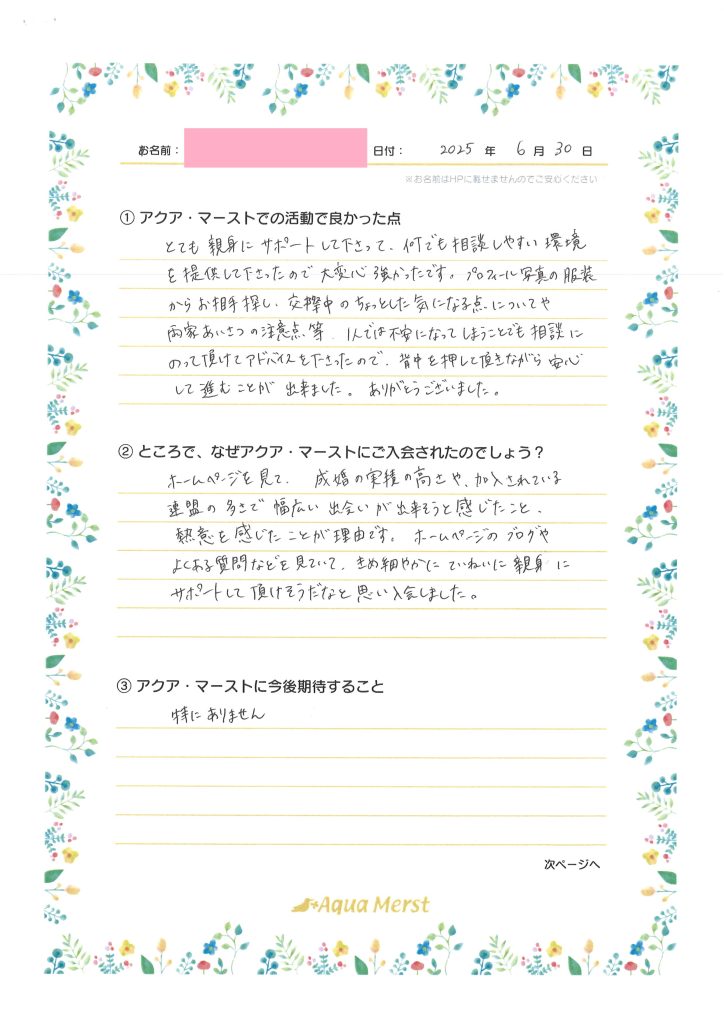 お名前： 日付： 2025 年 6 月 30 日
※お名前はHPに載せませんのでご安心ください
① アクア・マーストでの活動で良かった点
とても親身にサポートして下さって、何でも相談しやすい環境
を提供して下さったので大変心強かったです。プロフィール写真の服装
からお相手探し、交際中のちょっとした気になる点についてや
両家あいさつの注意点等、1人では不安になってしまうことでも相談に
のって頂けてアドバイスを下さったので、背中を押して頂きながら安心
して進むことが出来ました。ありがとうございました。
② ところで、なぜアクア・マーストにご入会されたのでしょう？
ホームページを見て、成婚の実積の高さや、加入されている
連盟の多さで幅広い出会いが出来そうと感じたこと、
熱意を感じたことが理由です。ホームページのブログや
よくある質問などを見ていて、きめ細やかにていねいに親身に
サポートして頂けそうだなと思い入会しました。
③ アクア・マーストに今後期待すること
特にありません
次ページへ
Aqua Merst